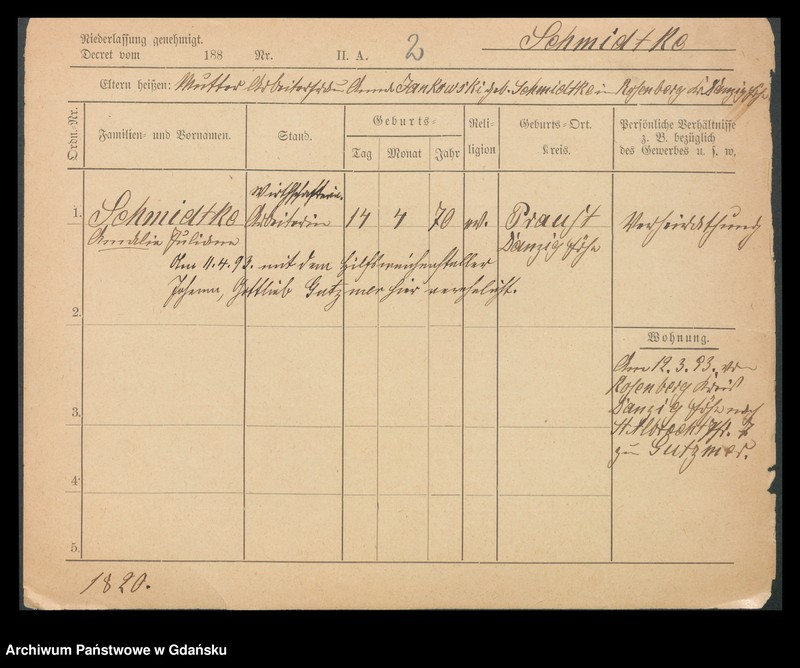 Niederlassung genehmigt.
Decret vom 188 Nr. II. A. 2 Schmidtke
Eltern heißen: Mutter Arbeiterfrau Anna Jankowski geb. Schmidtke in Rosenberg Kr. Danzig Höhe
Ordn.-Nr.
Familien- und Vornamen.
Stand.
Geburts-
Tag Monat Jahr
Reli-
ligion
Geburts-Ort.
Kreis.
Persönliche Verhältnisse
z. B. bezüglich
des Gewerbes u. s. w.
Wirthschafterin.
1. Schmidtke Arbeiterin 14 4 70 ev. Praust Verheirathung
Amalie Juliane Danzig Höhe
Am 11.4.93. mit dem Hilfsweichensteller
Johann, Gottlieb Gutzmer hier verehelicht.
2.
Wohnung.
Am 12.3.93. von
Rosenberg Kreis
Danzig Höhe nach
3.
St. Albrecht
zu Gutzmer.
4.
5.
1820.
Archiwum Państwowe w Gdańsku